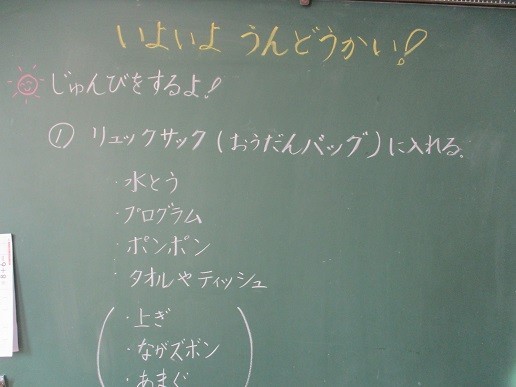 いよいよ うんどうかい!
じゅんびをするよ!
① リュックサック(おうだんバッグ)に入れる。
・水とう
・プログラム
・ポンポン
・タオルやティッシュ
(・上ぎ
・ながズボン
・あまぐ)